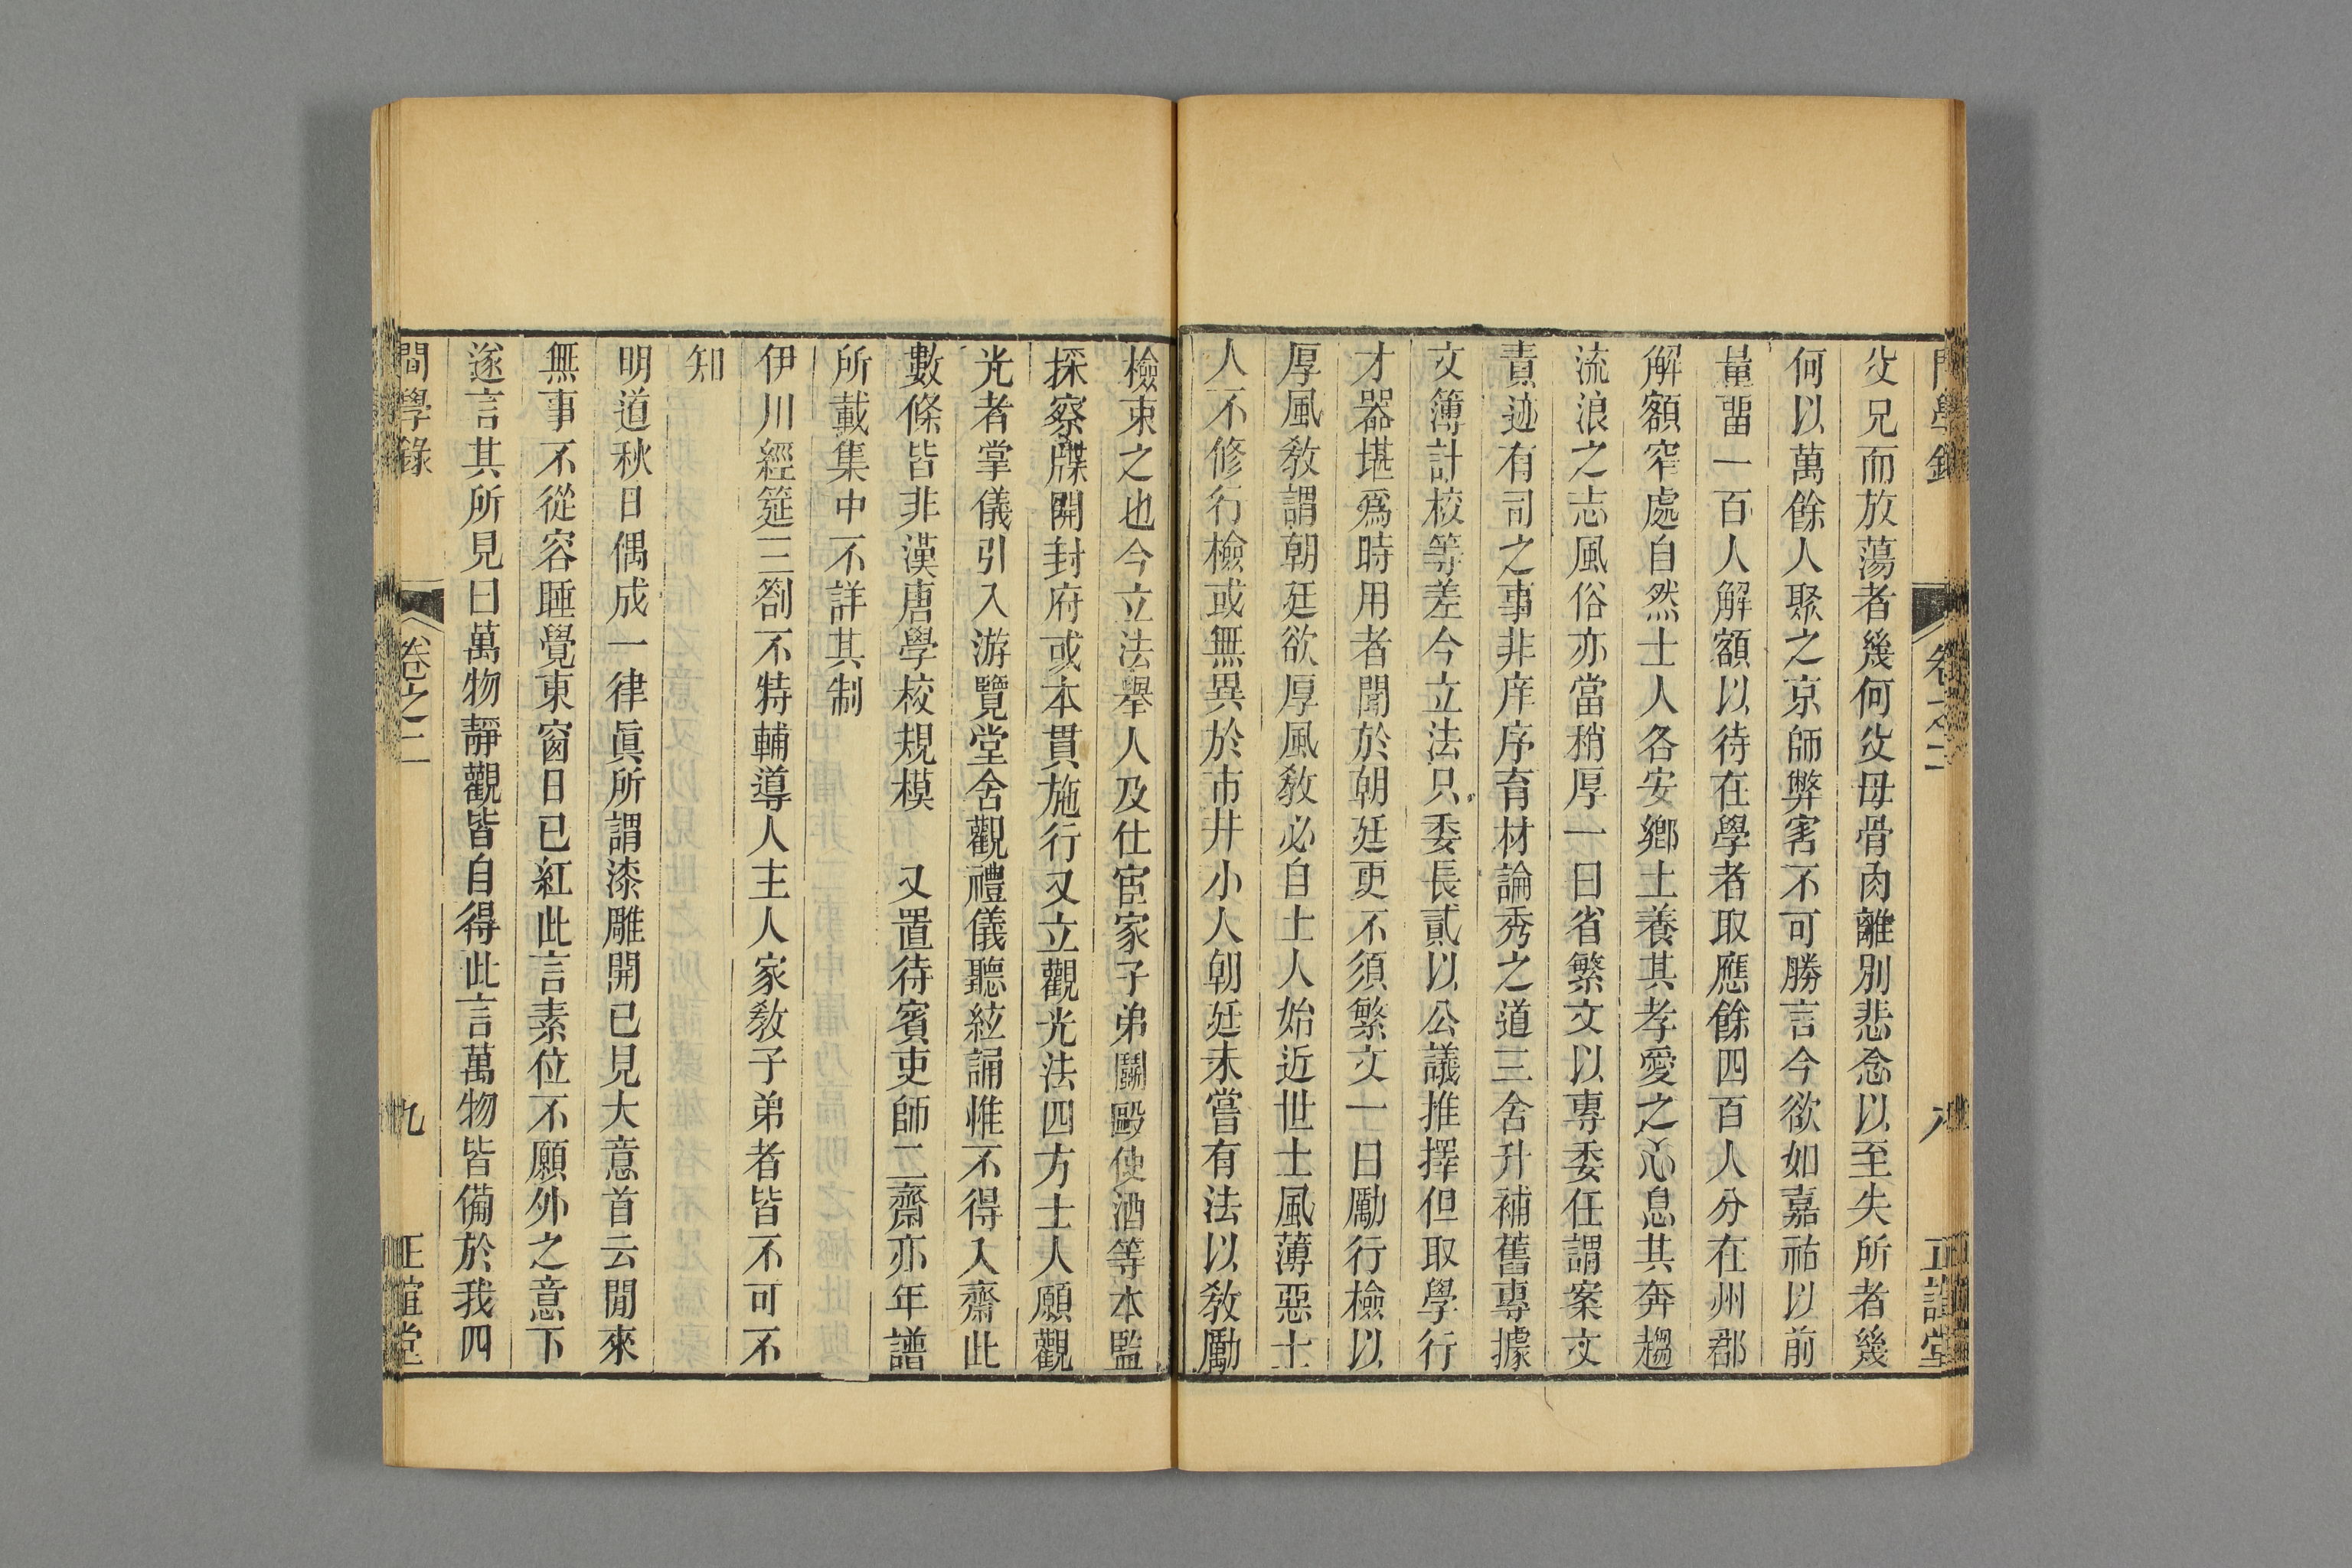 問學錄 卷之二 八 正誼堂
父兄而放蕩者幾何父母骨肉離別悲念以至失所者幾
何以萬餘人聚之京師弊害不可勝言今欲如嘉祐以前
量畱一百人解額以待在學者取應餘四百人分在州郡
解額窄處自然士人各安鄉土養其孝愛之心息其奔趨
流浪之志風俗亦當稍厚一曰省繁文以專委任謂案文
責迹有司之事非庠序育材論秀之道三舍升補舊專據
文簿計校等差今立法只委長貳以公議推擇但取學行
才器堪爲時用者聞於朝廷更不須繁文一曰勵行檢以
厚風敎謂朝廷欲厚風敎必自士人始近世士風薄惡士
人不修行檢或無異於市井小人朝廷未嘗有法以敎勵
檢束之也今立法舉人及仕宦家子弟鬭毆使酒等本監
採察牒開封府或本貫施行又立觀光法四方士人願觀
光者掌儀引入游覽堂舍觀禮儀聽絃誦惟不得入齋此
數條皆非漢唐學校規模　又置待賓吏師二齋亦年譜
所載集中不詳其制
伊川經筵三劄不特輔導人主人家敎子弟者皆不可不
知
明道秋日偶成一律眞所謂漆雕開已見大意首云閒來
無事不從容睡覺東窗日已紅此言素位不願外之意下
遂言其所見曰萬物靜觀皆自得此言萬物皆備於我四
問學錄 卷之二 九 正誼堂